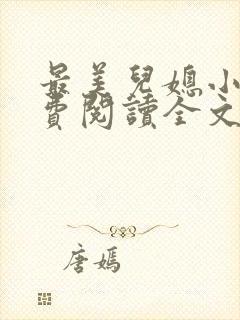 最美兒媳小
費閱讀全文
唐嫣